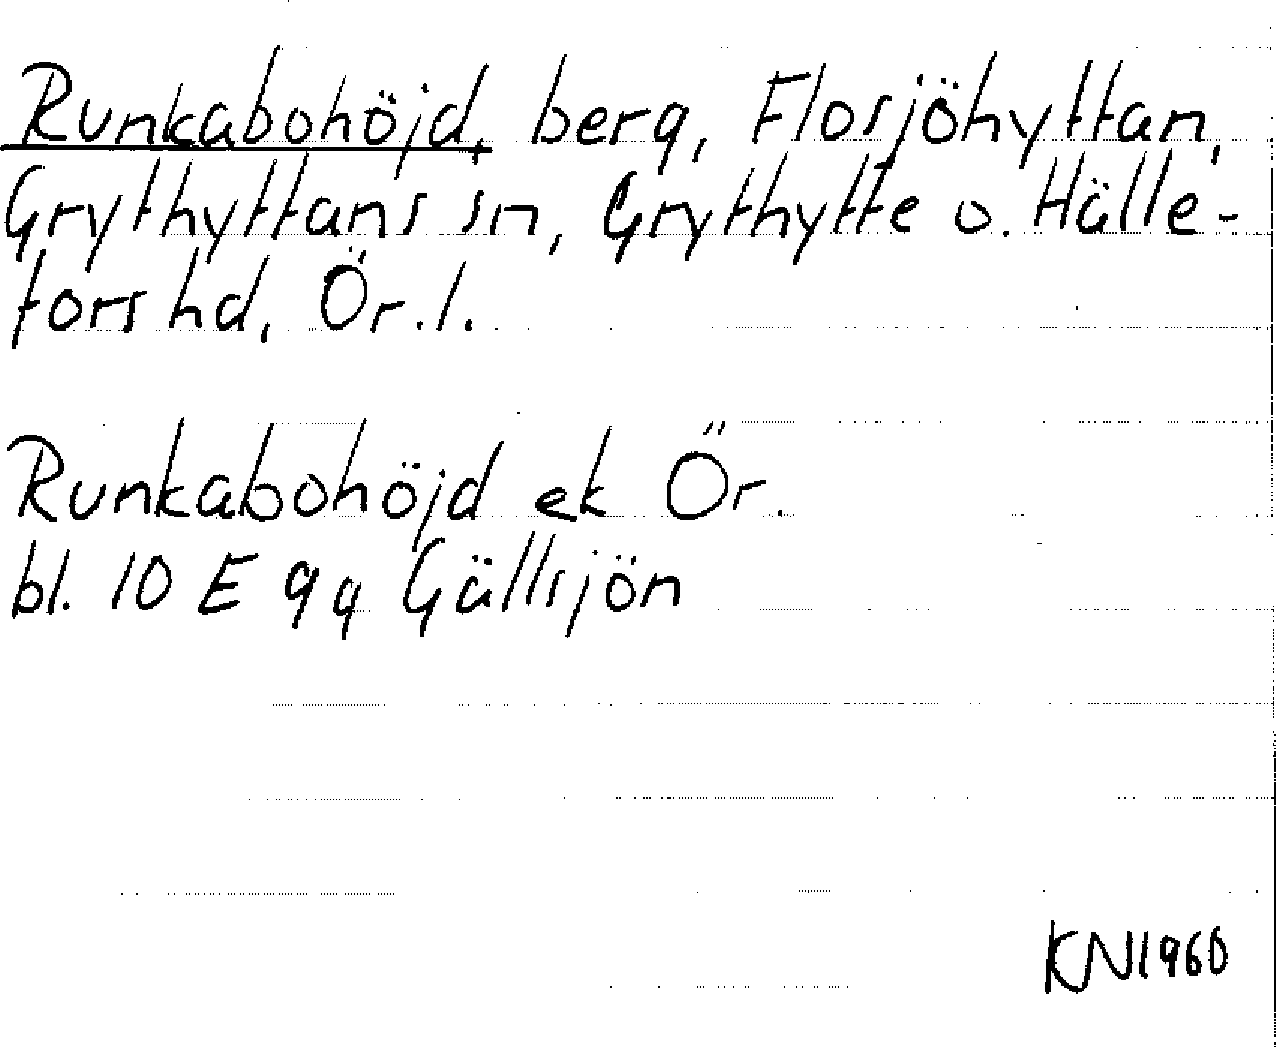 Runkabohöjd, berg, Flosjöhyttan,
Grythyttans sn, Grythytte o. Hälle-
fors hd, Ör. l.
Runkabohöjd ek Ör.
bl. 10 E 9g Gällsjön
KN 1960